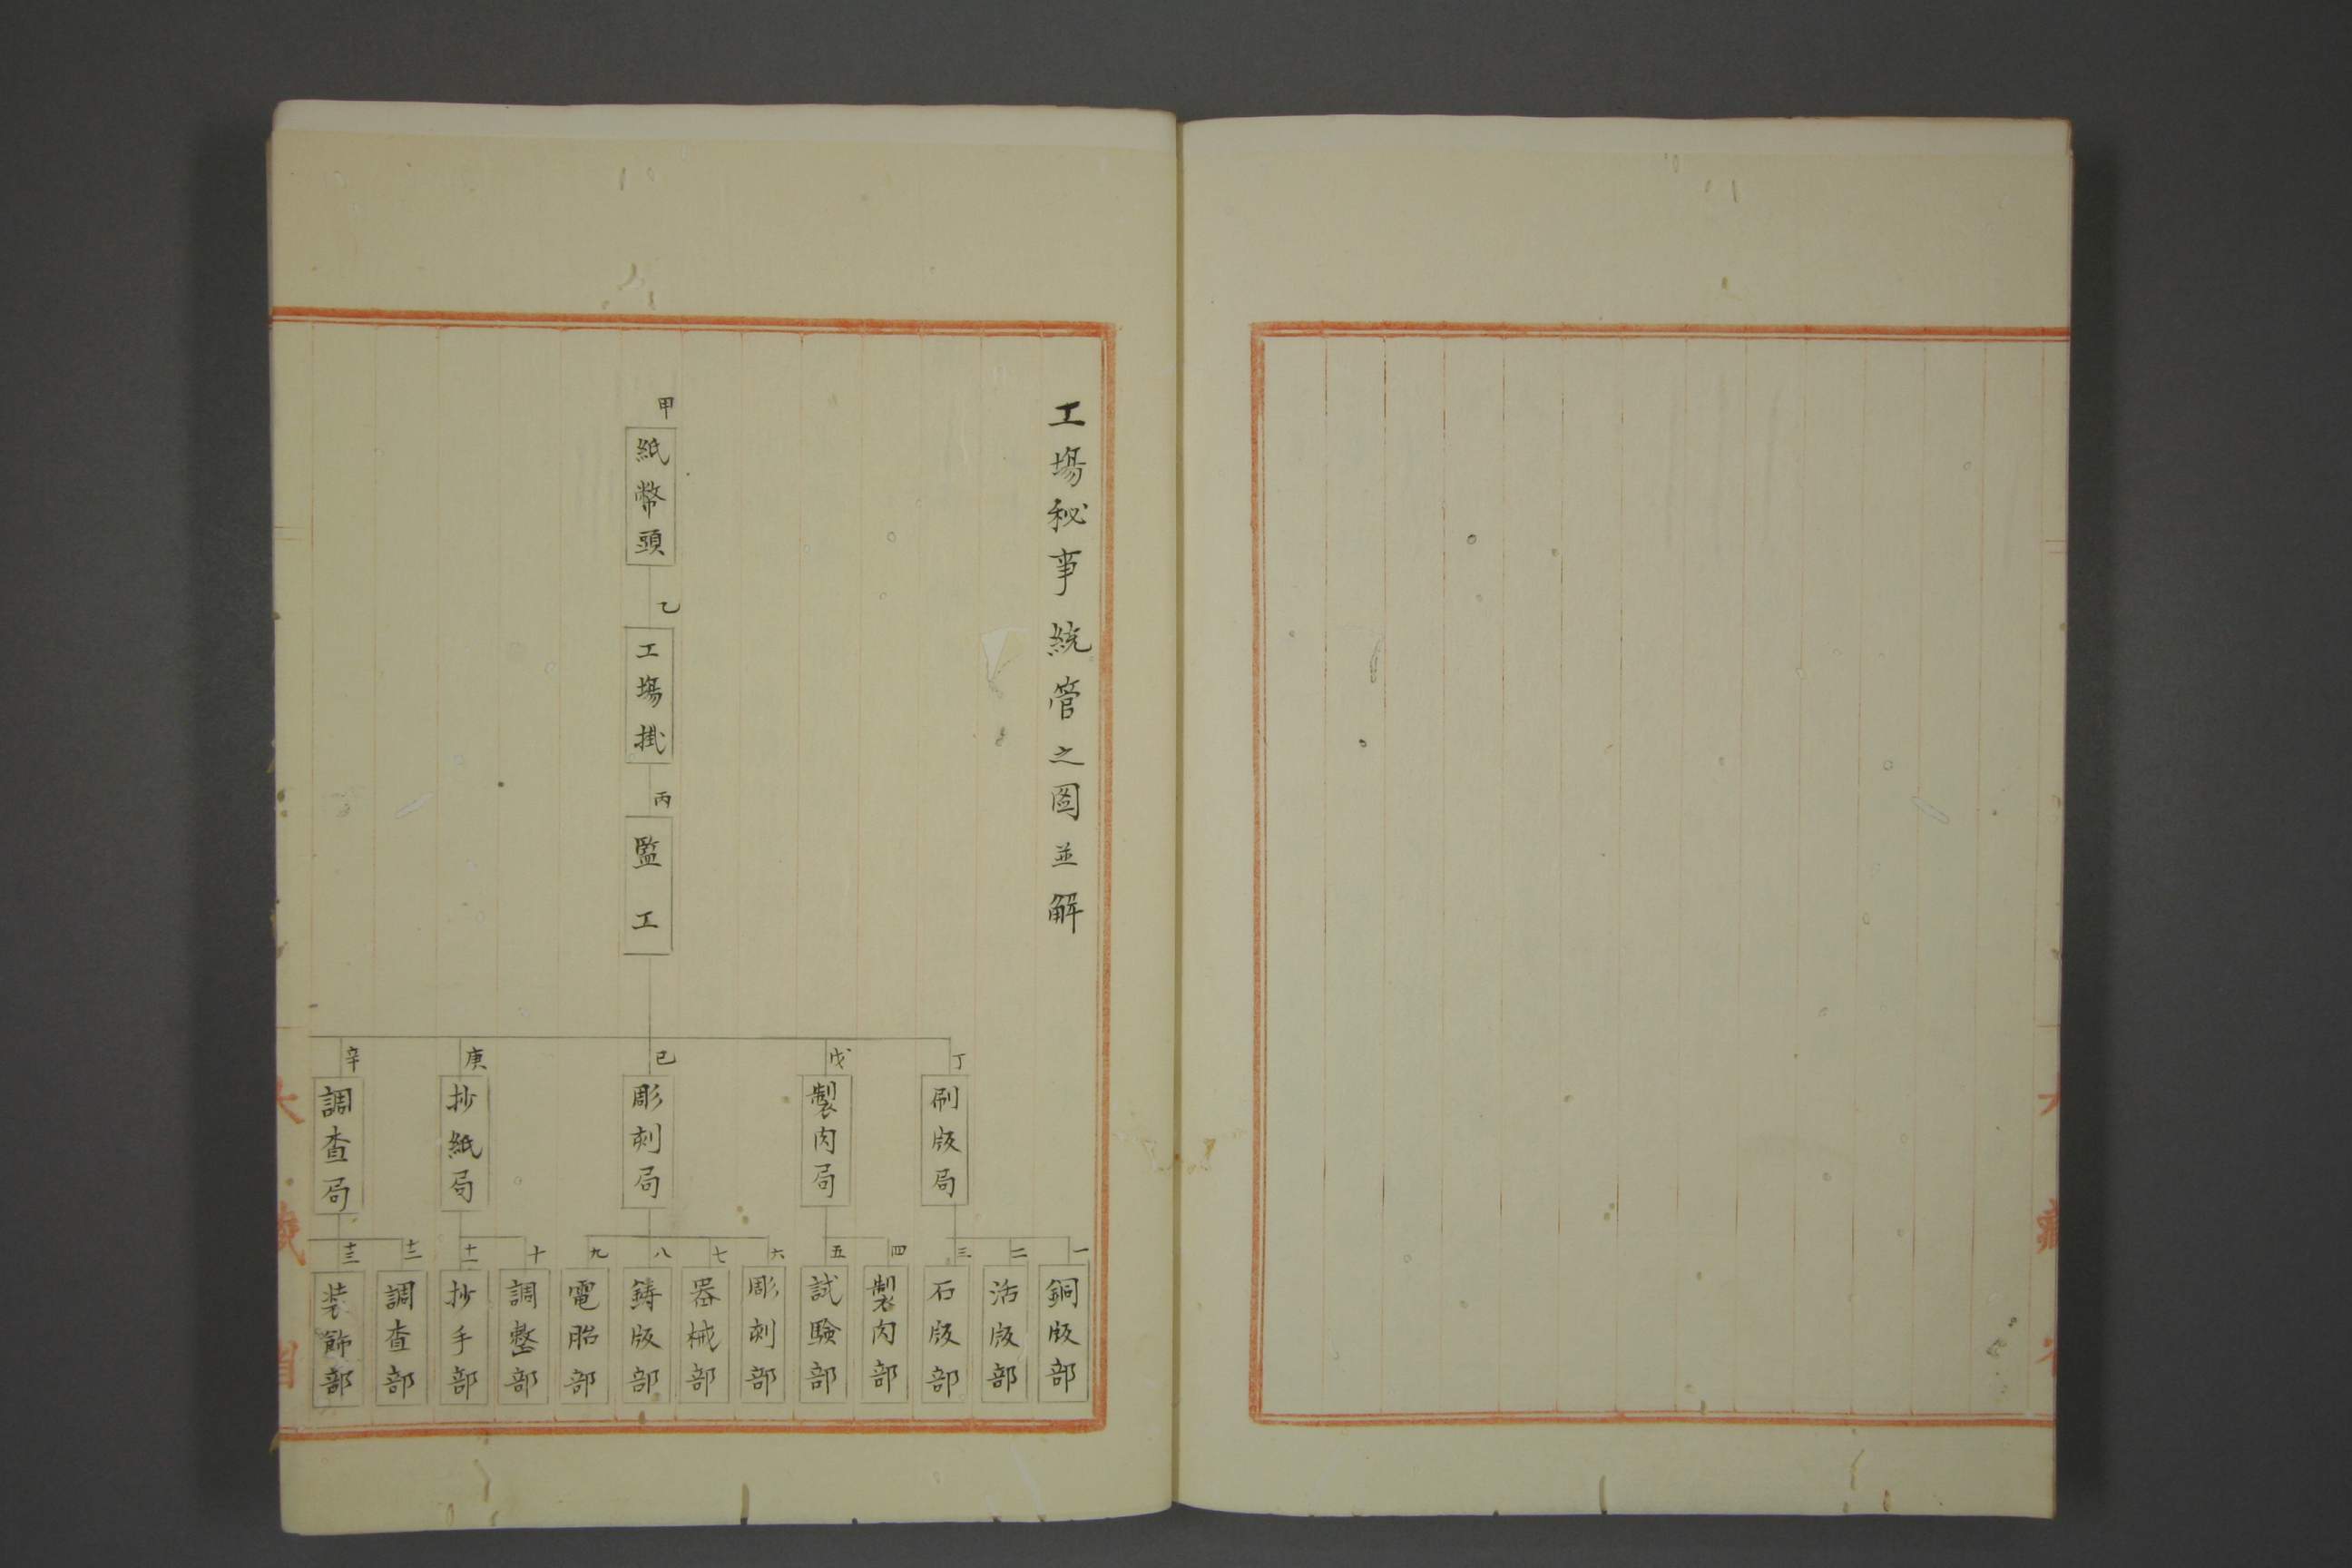 工場秘事統管之圖並解
甲
紙幣頭
乙
工場掛
丙
監工
丁
刷版局
戊
製肉局
己
彫刻局
庚
抄紙局
辛
調査局
一
銅版部
二
活版部
三
石版部
四
製肉部
五
試験部
六
彫刻部
七
器械部
八
鋳版部
九
電胎部
十
調整部
十一
抄手部
十二
調査部
十三
装飾部